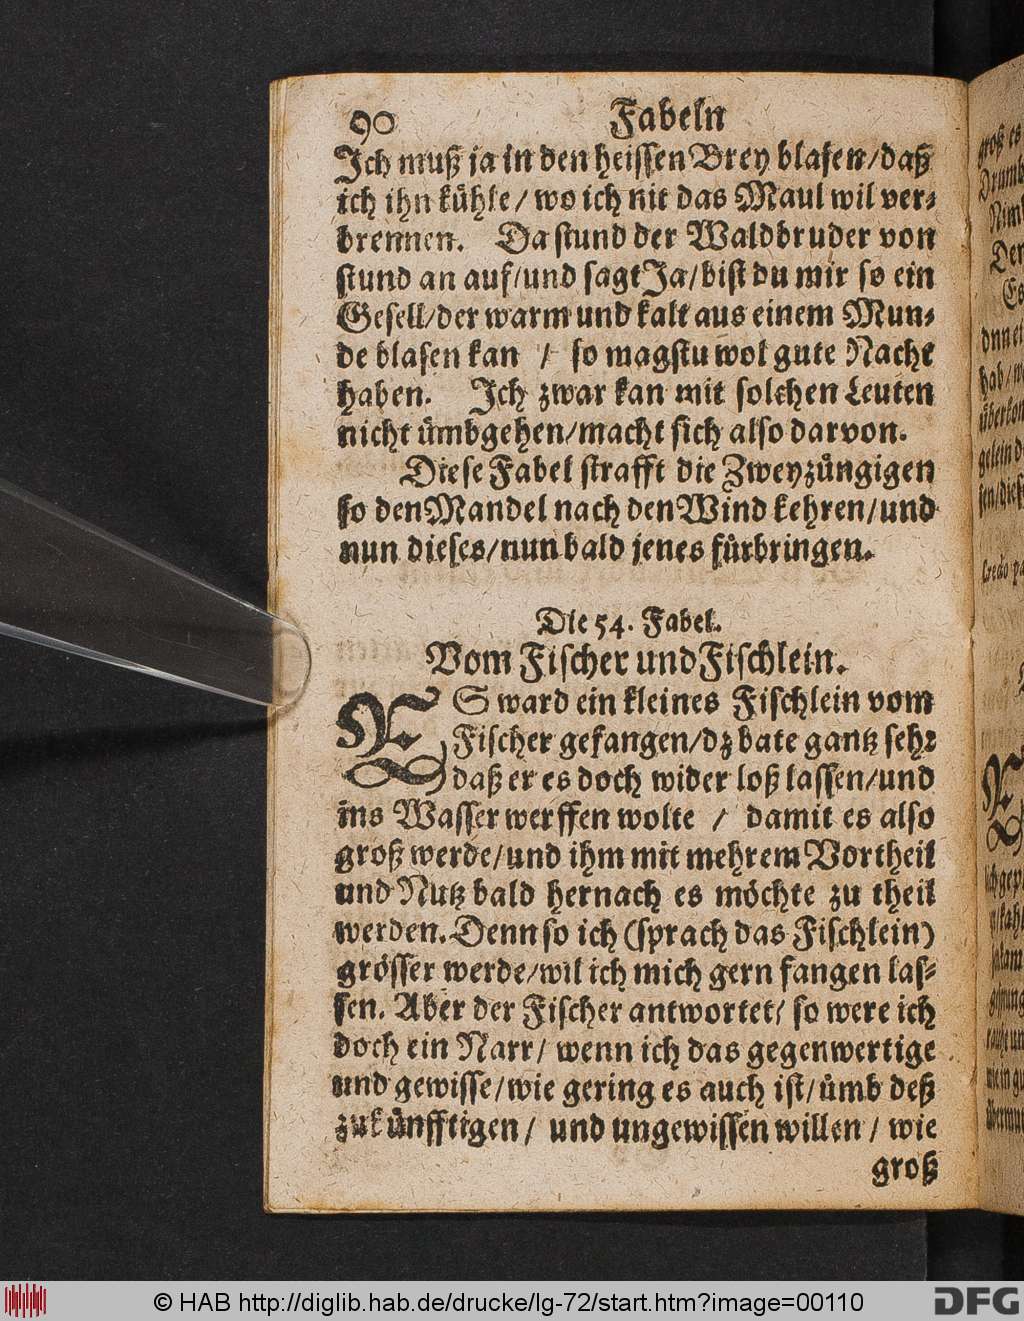 90 Fabeln
Ich muß ja in den heissen Brey blasen/daß
ich ihn kühle/ wo ich nit das Maul wil ver-
brennen. Da stund der Waldbruder von
stund an auf/und sagt Ja/bist du mir so ein
Gesell/der warm und kalt aus einem Mun-
de blasen kan / so magstu wol gute Nacht
haben. Ich zwar kan mit solchen Leuten
nicht ümbgehen/macht sich also darvon.
Diese Fabel strafft die Zweyzüngigen
so den Mandel nach den Wind kehren/und
nun dieses/nun bald jenes fürbringen.
Die 54. Fabel.
Vom Fischer und Fischlein.
ES ward ein kleines Fischlein vom
Fischer gefangen/dz bate gantz sehr
daß er es doch wider loß lassen/und
ins Wasser werffen wolte / damit es also
groß werde/und ihm mit mehrem Vortheil
und Nutz bald hernach es möchte zu theil
werden. Denn so ich (sprach das Fischlein)
grösser werde/wil ich mich gern fangen las-
sen. Aber der Fischer antwortet/ so were ich
doch ein Narr/ wenn ich das gegenwertige
und gewisse/wie gering es auch ist/ümb deß
zukünfftigen / und ungewissen willen / wie
groß
groß es
Der
Es
© HAB http://diglib.hab.de/drucke/lg-72/start.htm?image=00110
DFG